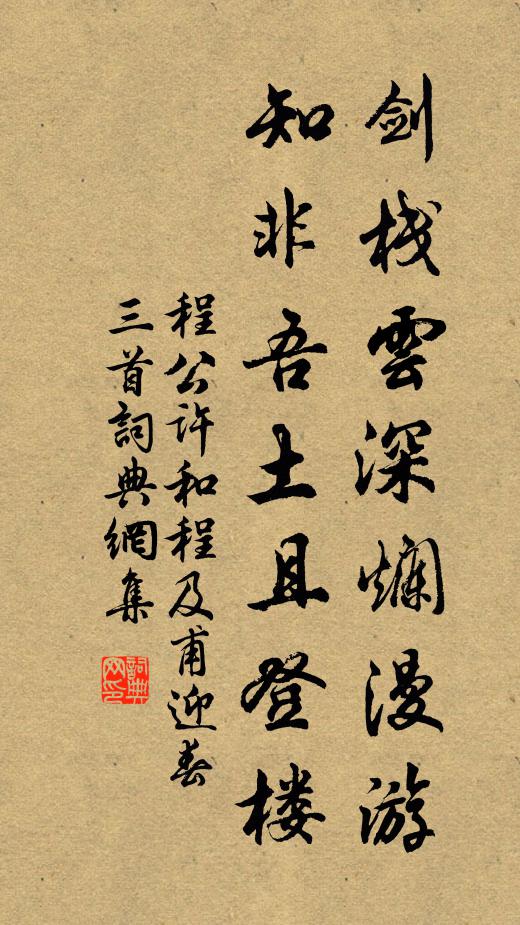 剑栈雲深爛漫游
知非吾土且登楼
程公许和程及甫迎春
三首詞典網集
詞典网印